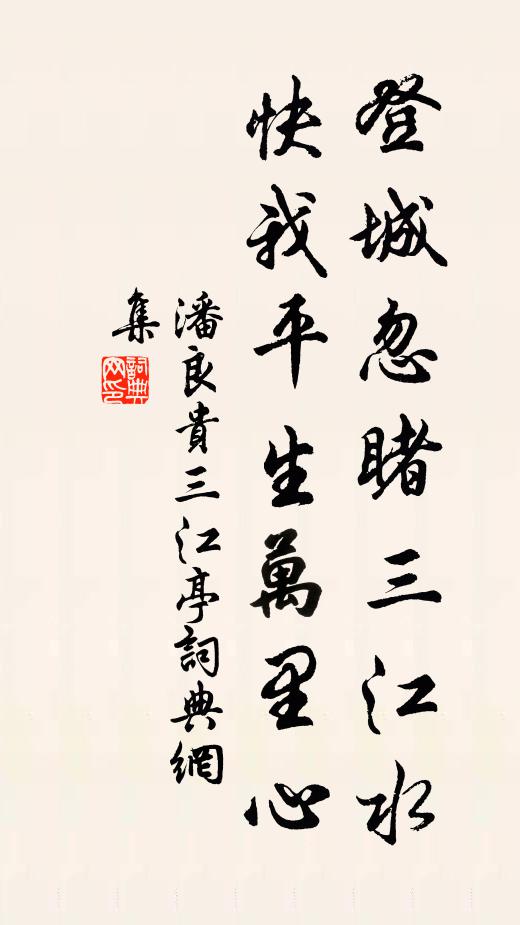 登城忽睹三江水
快我平生萬里心
潘良貴三江亭詞典網
集
詞典網印